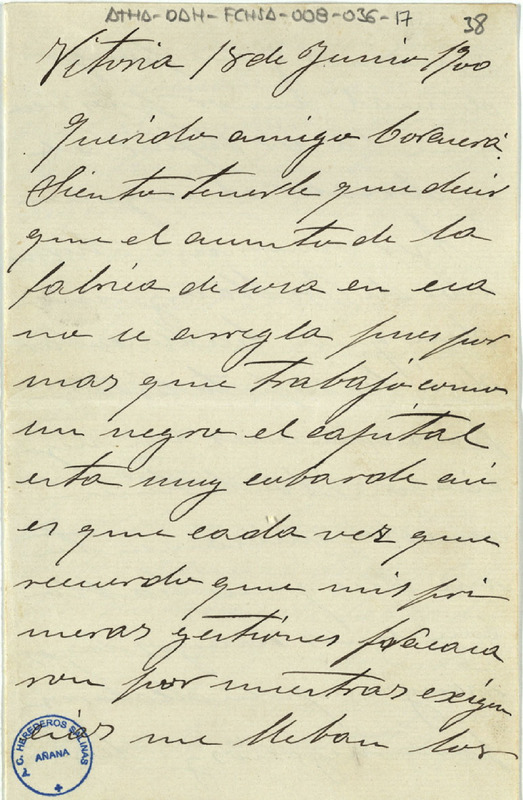 ATHA-DAH-FCHSA-008-036-17
38
Vitoria 18 de Junio 1900
Querido amigo
Siento tenerle que decir
que el asunto de la
fabrica de sosa en esa
no se arregla pues por
mas que trabajo como
un negro el capital
esta muy cobarde asi
es que cada vez que
recuerdo que mis pri
meras gestiones fracasa
ron por nuestras exigen
cias me lleban los
C. HEREDEROS SALINAS
AÑANA